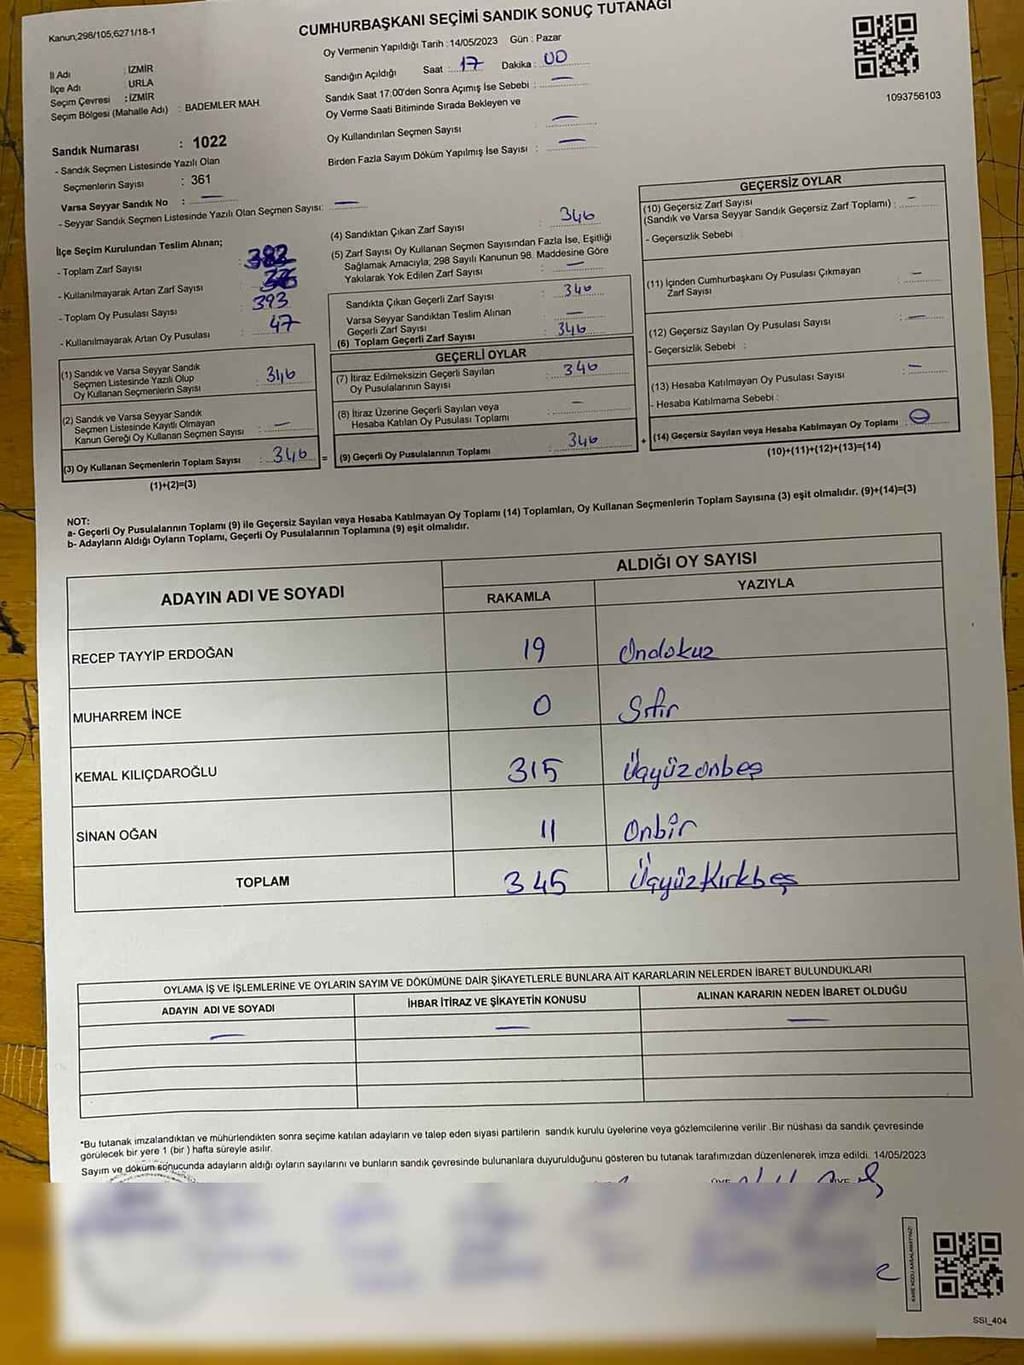 Kanun,298/105,6271/18-1
CUMHURBAŞKANI SEÇİMİ SANDIK SONUÇ TUTANAĞI
Oy Vermenin Yapıldığı Tarih : 14/05/2023 Gün : Pazar
İl Adı : İZMİR
İlçe Adı : URLA
Seçim Çevresi : İZMİR
Seçim Bölgesi (Mahalle Adı) : BADEMLER MAH.
Sandığın Açıldığı Saat : 17 Dakika : 00
Sandık Saat 17:00'den Sonra Açımış İse Sebebi : —
Oy Verme Saati Bitiminde Sırada Bekleyen ve
Oy Kullandırılan Seçmen Sayısı —
Birden Fazla Sayım Döküm Yapılmış İse Sayısı : —
1093756103
Sandık Numarası : 1022
- Sandık Seçmen Listesinde Yazılı Olan
Seçmenlerin Sayısı : 361
Varsa Seyyar Sandık No : —
- Seyyar Sandık Seçmen Listesinde Yazılı Olan Seçmen Sayısı: —
İlçe Seçim Kurulundan Teslim Alınan;
- Toplam Zarf Sayısı :
- Kullanılmayarak Artan Zarf Sayısı :
- Toplam Oy Pusulası Sayısı : 393
- Kullanılmayarak Artan Oy Pusulası : 47
(1) Sandık ve Varsa Seyyar Sandık
Seçmen Listesinde Yazılı Olup
Oy Kullanan Seçmenlerin Sayısı : 346
(2) Sandık ve Varsa Seyyar Sandık
Seçmen Listesinde Kayıtlı Olmayan
Kanun Gereği Oy Kullanan Seçmen Sayısı : —
(3) Oy Kullanan Seçmenlerin Toplam Sayısı : 346 =
(1)+(2)=(3)
(4) Sandıktan Çıkan Zarf Sayısı : 346
(5) Zarf Sayısı Oy Kullanan Seçmen Sayısından Fazla İse, Eşitliği
Sağlamak Amacıyla; 298 Sayılı Kanunun 98. Maddesine Göre
Yakılarak Yok Edilen Zarf Sayısı : —
Sandıkta Çıkan Geçerli Zarf Sayısı : 346
Varsa Seyyar Sandıktan Teslim Alınan
Geçerli Zarf Sayısı : —
(6) Toplam Geçerli Zarf Sayısı : 346
GEÇERLİ OYLAR
(7) İtiraz Edilmeksizin Geçerli Sayılan
Oy Pusulalarının Sayısı : 346
(8) İtiraz Üzerine Geçerli Sayılan veya
Hesaba Katılan Oy Pusulası Toplamı : —
(9) Geçerli Oy Pusulalarının Toplamı : 346 +
GEÇERSİZ OYLAR
(10) Geçersiz Zarf Sayısı
(Sandık ve Varsa Seyyar Sandık Geçersiz Zarf Toplamı) : —
- Geçersizlik Sebebi :
(11) İçinden Cumhurbaşkanı Oy Pusulası Çıkmayan
Zarf Sayısı : —
(12) Geçersiz Sayılan Oy Pusulası Sayısı : —
- Geçersizlik Sebebi :
(13) Hesaba Katılmayan Oy Pusulası Sayısı : —
- Hesaba Katılmama Sebebi :
(14) Geçersiz Sayılan veya Hesaba Katılmayan Oy Toplamı :
(10)+(11)+(12)+(13)=(14)
NOT:
a- Geçerli Oy Pusulalarının Toplamı (9) ile Geçersiz Sayılan veya Hesaba Katılmayan Oy Toplamı (14) Toplamları, Oy Kullanan Seçmenlerin Toplam Sayısına (3) eşit olmalıdır. (9)+(14)=(3)
b- Adayların Aldığı Oyların Toplamı, Geçerli Oy Pusulalarının Toplamına (9) eşit olmalıdır.
ADAYIN ADI VE SOYADI
ALDIĞI OY SAYISI
RAKAMLA YAZIYLA
RECEP TAYYİP ERDOĞAN 19 Ondokuz
MUHARREM İNCE 0 Sıfır
KEMAL KILIÇDAROĞLU 315 Üçyüzonbeş
SİNAN OĞAN 11 Onbir
TOPLAM 345 ÜçyüzKırkbeş
OYLAMA İŞ VE İŞLEMLERİNE VE OYLARIN SAYIM VE DÖKÜMÜNE DAİR ŞİKAYETLERLE BUNLARA AİT KARARLARIN NELERDEN İBARET BULUNDUKLARI
ADAYIN ADI VE SOYADI İHBAR İTİRAZ VE ŞİKAYETİN KONUSU ALINAN KARARIN NEDEN İBARET OLDUĞU
— — —
*Bu tutanak imzalandıktan ve mühürlendikten sonra seçime katılan adayların ve talep eden siyasi partilerin sandık kurulu üyelerine veya gözlemcilerine verilir .Bir nüshası da sandık çevresinde
görülecek bir yere 1 (bir ) hafta süreyle asılır.
Sayım ve döküm sonucunda adayların aldığı oyların sayılarını ve bunların sandık çevresinde bulunanlara duyurulduğunu gösteren bu tutanak tarafımızdan düzenlenerek imza edildi. 14/05/2023
SSI_404